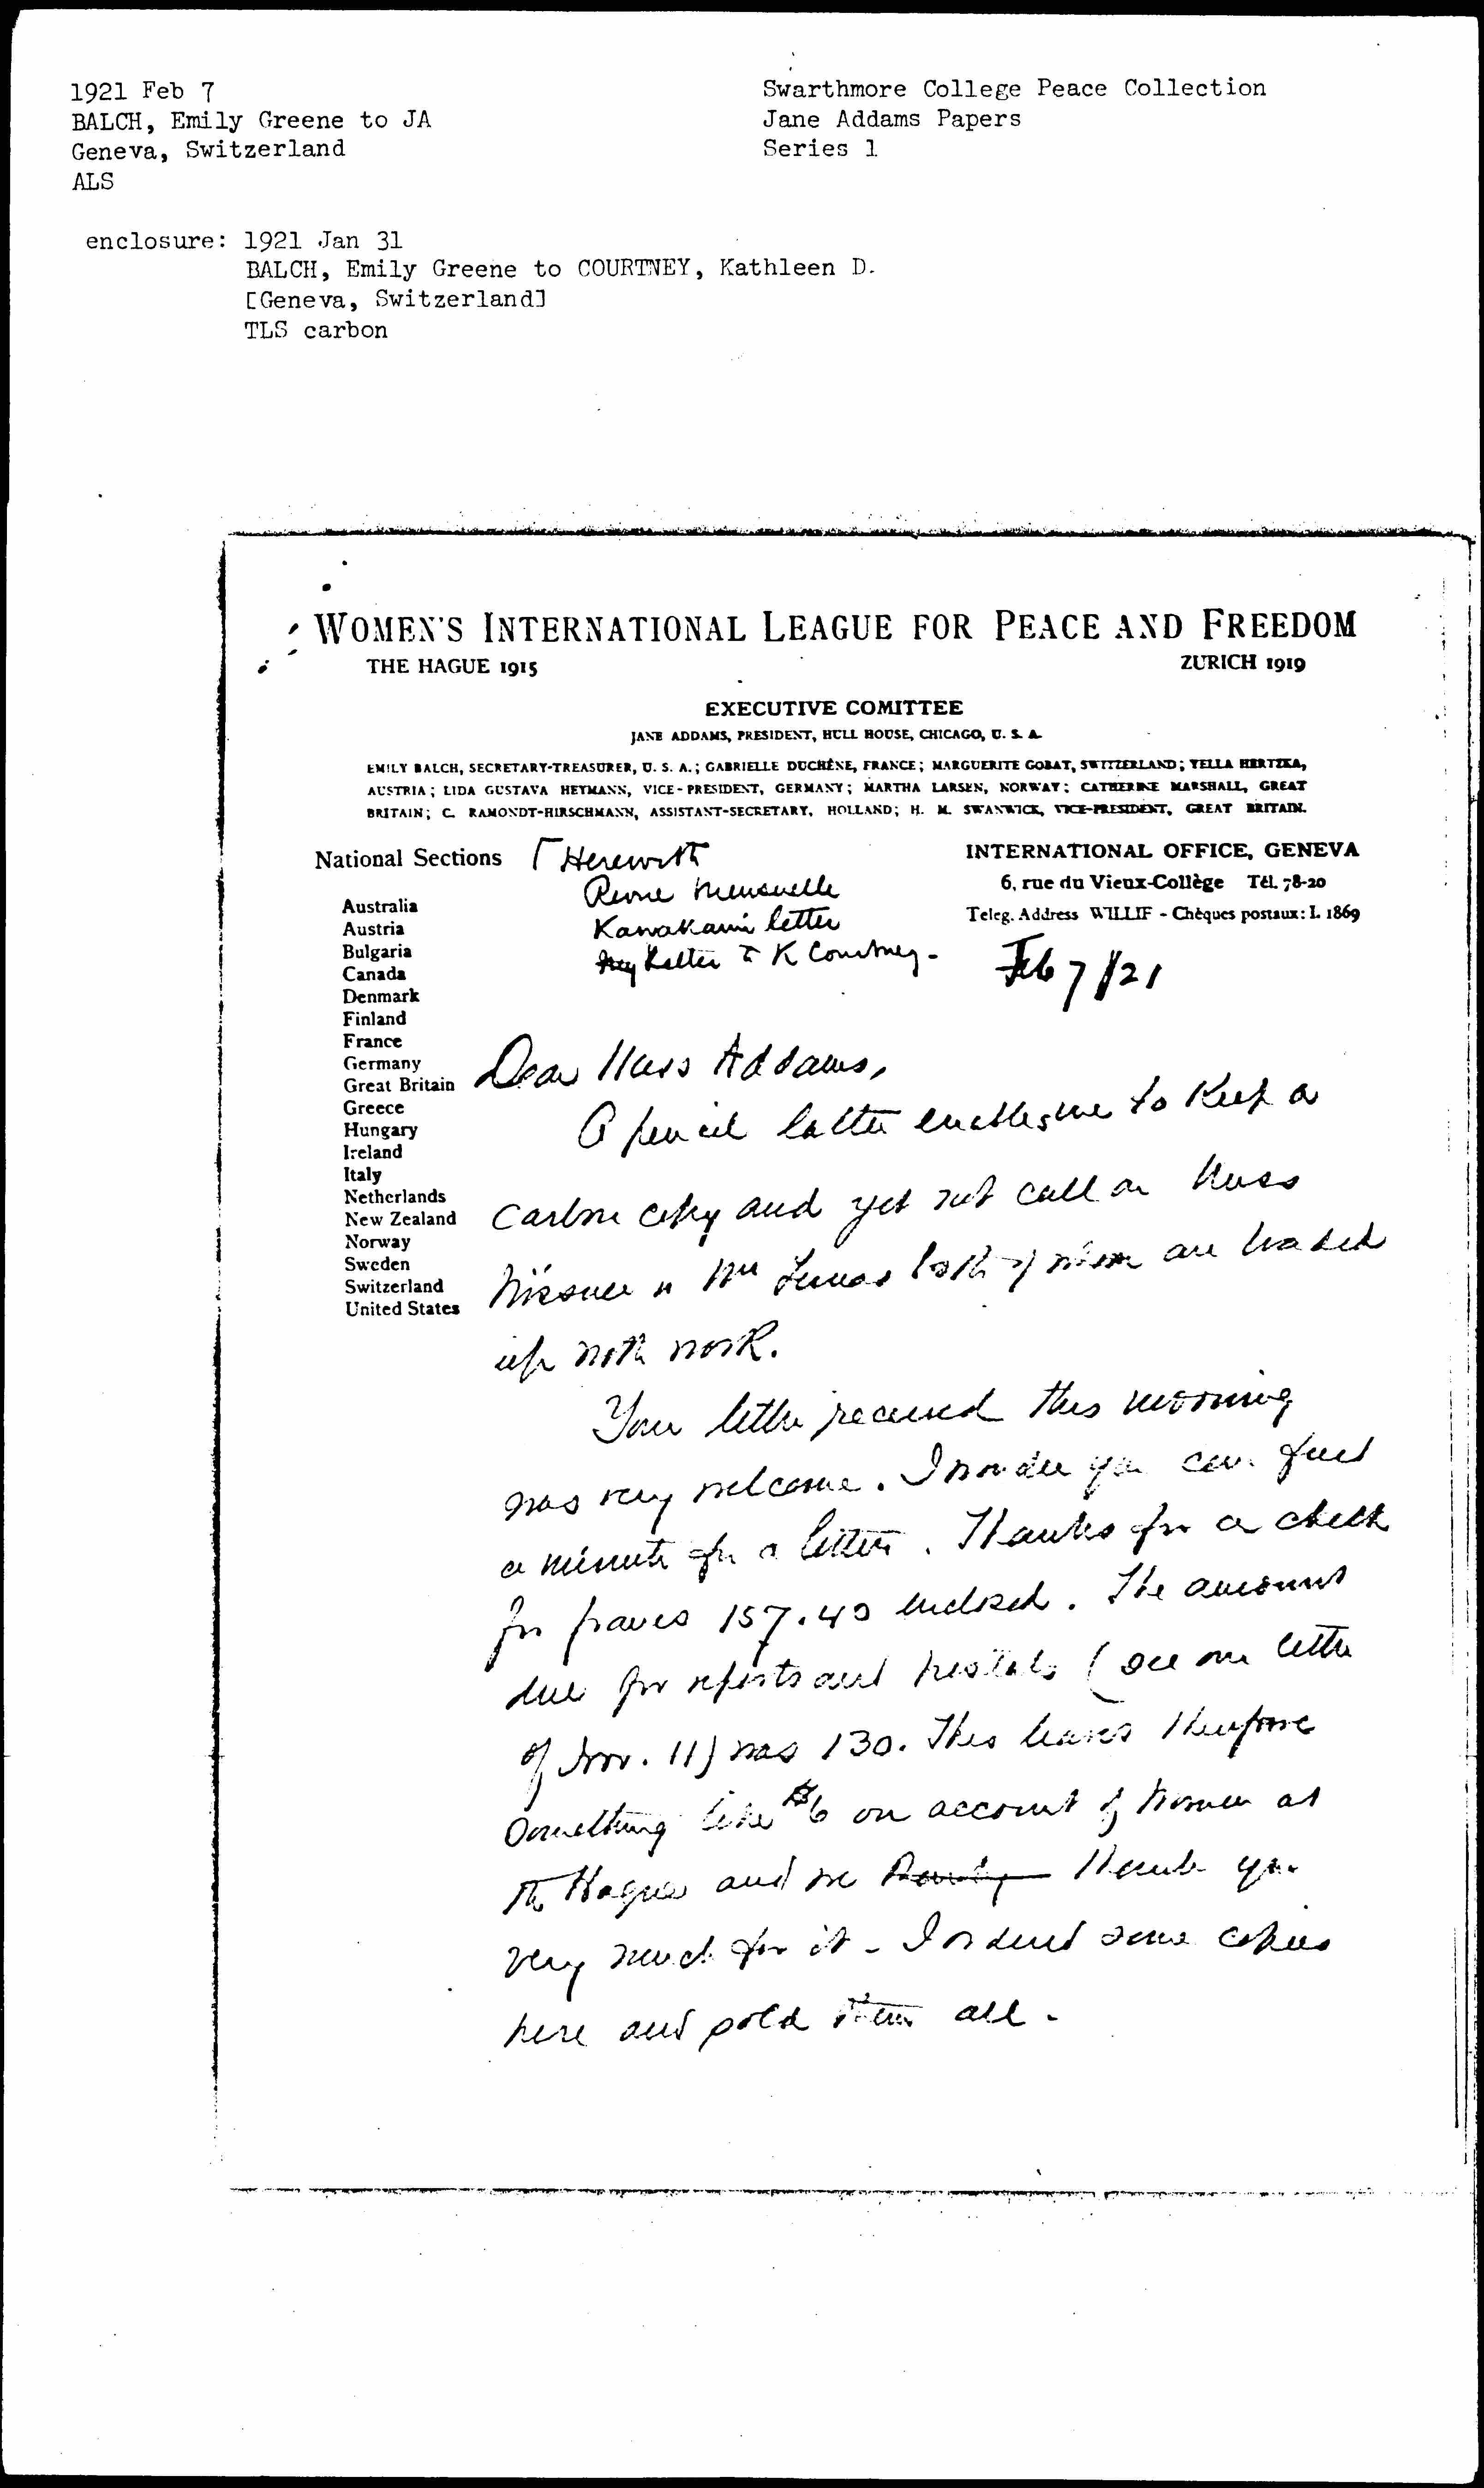 1921 Feb 7
BALCH, Emily Greene to JA
Geneva, Switzerland
ALS
Swarthmore College Peace Collection
Jane Addams Papers
Series 1
enclosure: 1921 Jan 31
BALCH, Emily Greene to COURTNEY, Kathleen D.
[Geneva, Switzerland]
TLS carbon
WOMEN'S INTERNATIONAL LEAGUE FOR PEACE AND FREEDOM
THE HAGUE 1915
ZURICH 1919
EXECUTIVE COMITTEE
JANE ADDAMS, PRESIDENT, HULL HOUSE, CHICAGO, U. S. A.
EMILY BALCH, SECRETARY-TREASURER, U. S. A.; GABRIELLE DUCHÊNE, FRANCE; MARGUERITE GOBAT, SWITZERLAND; YELLA HERTZKA,
AUSTRIA; LIDA GUSTAVA HEYMANN, VICE-PRESIDENT, GERMANY; MARTHA LARSEN, NORWAY; CATHERINE MARSHALL, GREAT
BRITAIN; C. RAMONDT-HIRSCHMANN, ASSISTANT-SECRETARY, HOLLAND; H. M. SWANWICK, VICE-PRESIDENT, GREAT BRITAIN.
National Sections
Australia
Austria
Bulgaria
Canada
Denmark
Finland
France
Germany
Great Britain
Greece
Hungary
Ireland
Italy
Netherlands
New Zealand
Norway
Sweden
Switzerland
United States
Herewith
Revue Mensuelle
Kawakami letter
My letter to K Courtney-
INTERNATIONAL OFFICE, GENEVA
6, rue du Vieux-Collège Tél. 78-20
Teleg. Address WILLIF - Chèques postaux: I. 1869
Feb 7/21
Dear Miss Addams,
A pencil letter enables me to keep a
carbon copy and yet not call on Miss
or both of whom are loaded
up with work.
Your letter received this morning
was very welcome. I wonder you can find
a minute for a letter. Thanks for a check
for francs 157.40 enclosed. The amount
due for reports and postals (see our letter
of Nov. 11) was 130. This leaves therefore
something like $6 on account of Women at
the Hague and we thank you
very much for it - I ordered some copies
here and sold them all.